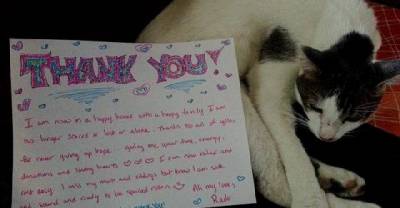 THANK YOU!
I am now in a happy home with a happy family. I am
no longer scared or lost or alone. Thanks to all of you
for never giving up hope.... giving me your time, energy,
donations and loving hearts ♡♡♡ I am now relaxed and
rest easy. I miss my mum and siblings but know I am safe
and sound and ready to be spoiled rotten.
All my love,